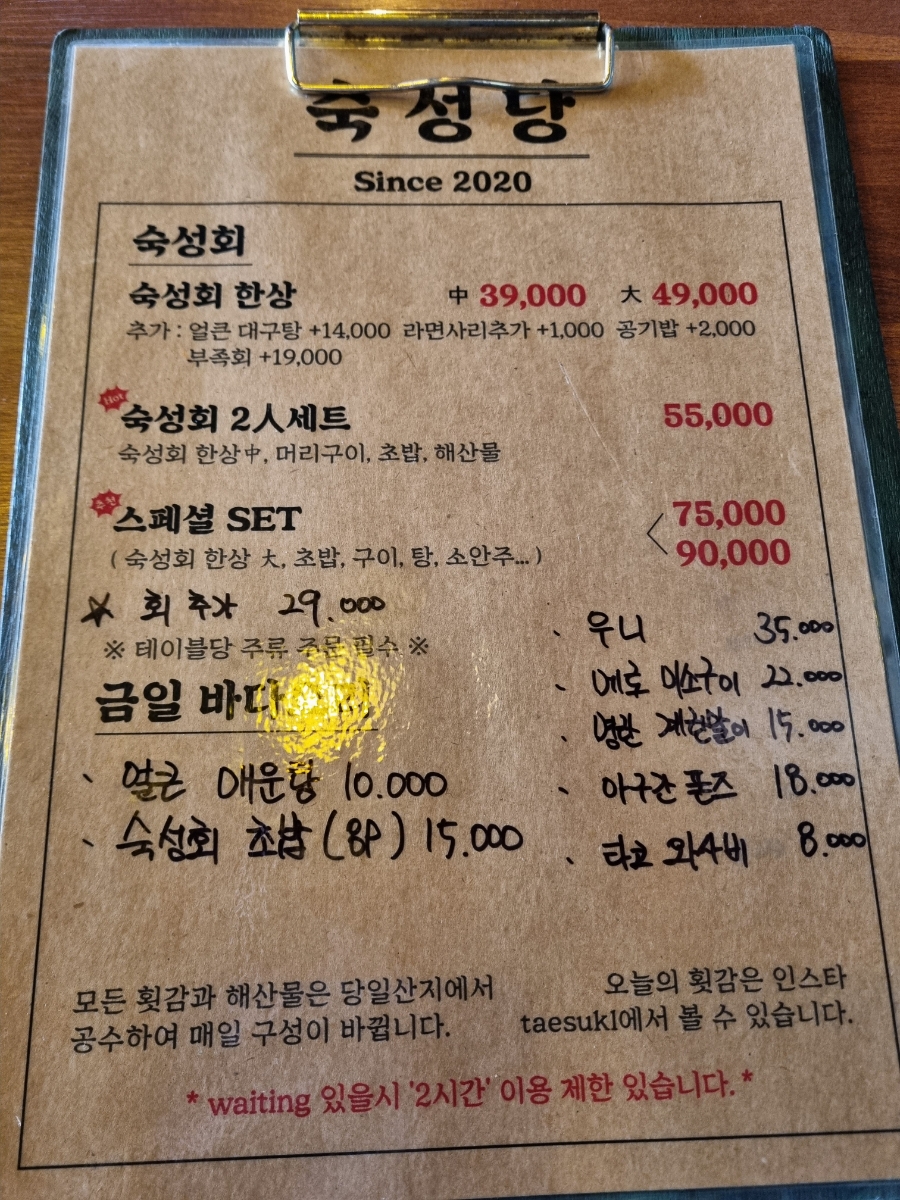 숙성당
Since 2020
숙성회
숙성회 한상 中 39,000 大 49,000
추가 : 얼큰 대구탕 +14,000 라면사리추가 +1,000 공기밥 +2,000
부족회 +19,000
Hot
숙성회 2人세트 55,000
숙성회 한상中, 머리구이, 초밥, 해산물
추천
스페셜 SET 75,000
90,000
( 숙성회 한상 大, 초밥, 구이, 탕, 소안주... )
☆ 회 추가 29.000
※ 테이블당 주류 주문 필수 ※
금일 바다
· 얼큰 매운탕 10.000
· 숙성회 초밥 (8P) 15.000
· 우니 35.000
· 메로 미소구이 22.000
· 명란 계란말이 15.000
· 아구간 폰즈 18.000
· 타코 와사비 8.000
모든 횟감과 해산물은 당일산지에서
공수하여 매일 구성이 바뀝니다.
오늘의 횟감은 인스타
taesukl에서 볼 수 있습니다.
* waiting 있을시 '2시간' 이용 제한 있습니다. *